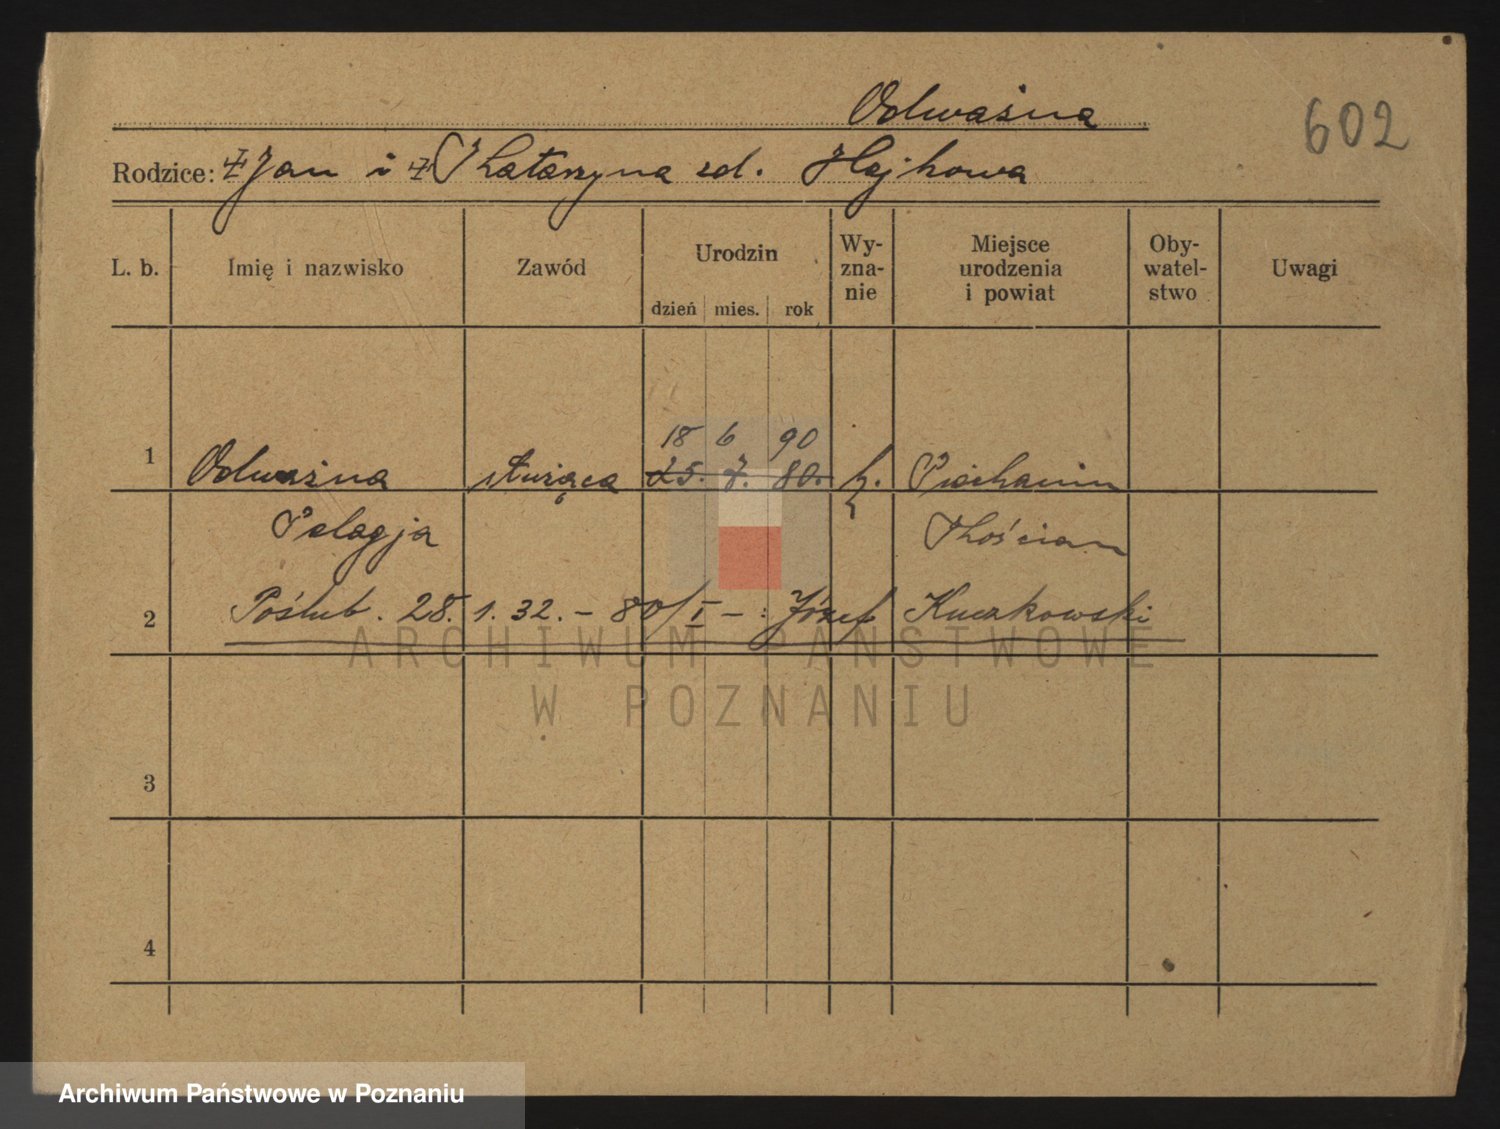 Odważna
602
Rodzice: Jan i Katarzyna zd. Hajkowa
L. b. Imię i nazwisko Zawód Urodzin dzień mies. rok Wy-zna-nie Miejsce urodzenia i powiat Oby-watel-stwo Uwagi
18 6 90
1 Odważna służąca 25. 7. 80. k. Piechanin
Pelagja Kościan
2 Poślub. 28. 1. 32. – 80/I – : Józef Kuczkowski
ARCHIWUM PAŃSTWOWE
W POZNANIU
3
4
Archiwum Państwowe w Poznaniu